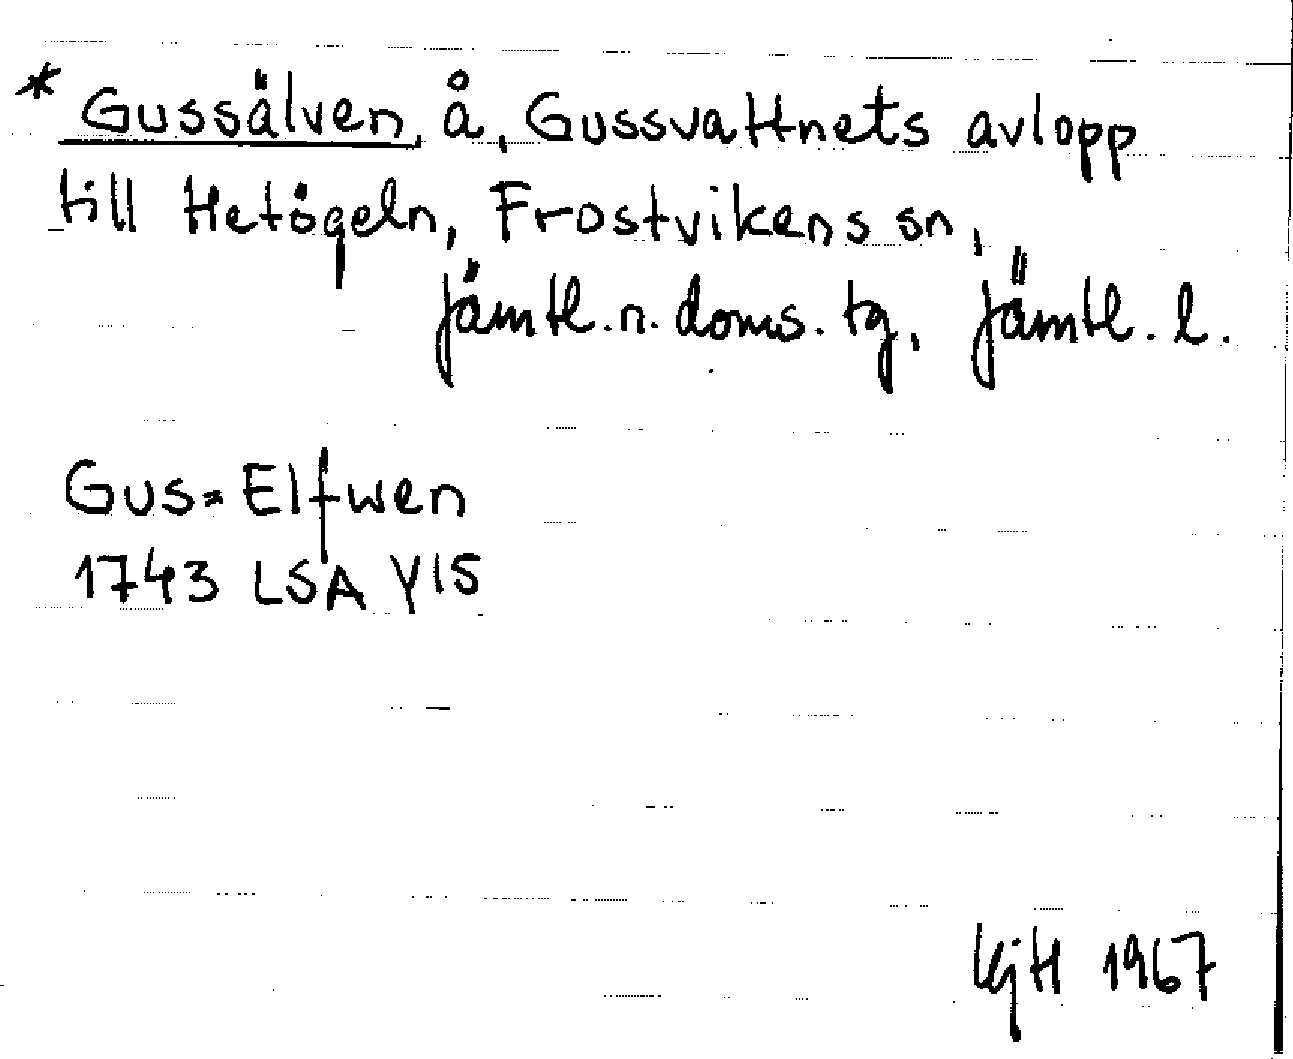 * Gussälven, å, Gussvattnets avlopp
till Hetögeln, Frostvikens sn,
Jämtl. n. doms. tg, Jämtl. l.
Gus=Elfwen
1743 LSA Y15
KjH 1967